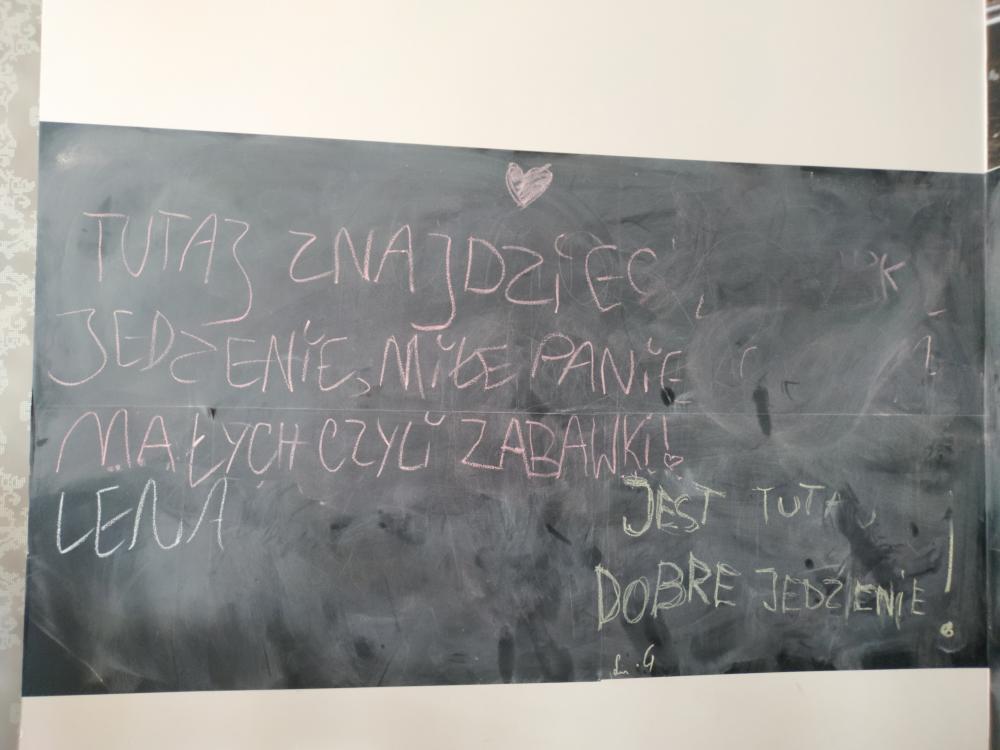 TUTAJ ZNAJDZIEC
JEDZENIE, MIŁE PANIE
MAŁYCH CZYLI ZABAWKI!
LENA
JEST TUTAJ
DOBRE JEDZENIE!